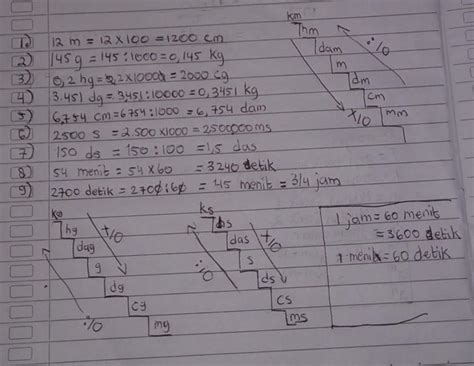 1) 12 m = 12 x 100 = 1200 cm
2) 145 g = 145 : 1000 = 0,145 kg
3) 0,2 hg = 0,2 x 10000 = 2000 cg
4) 3.451 dg = 3451 : 10000 = 0,3451 kg
5) 6,754 cm = 6754 : 1000 = 6,754 dam
6) 2500 s = 2.500 x 1000 = 2500000 ms
7) 150 ds = 150 : 100 = 1,5 das
8) 54 menit = 54 x 60 = 3240 detik
9) 2700 detik = 2700 : 60 = 45 menit = 3/4 jam
km
hm
dam
m
dm
cm
mm
:10
x10
kg
hg
dag
g
dg
cg
mg
x10
:10
ks
hs
das
s
ds
cs
ms
x10
:10
1 jam = 60 menit
= 3600 detik
1 menit = 60 detik